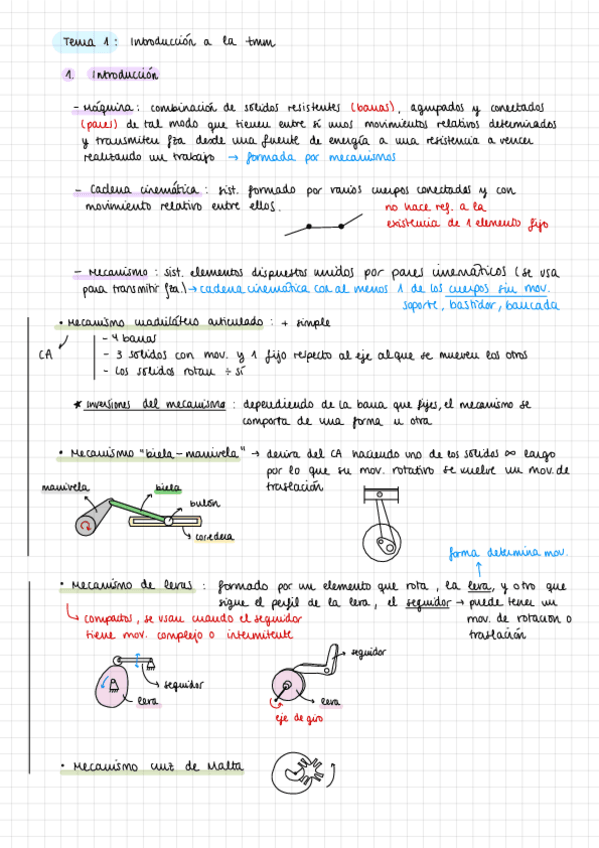 Tema 1: Introducción a la tmm
1. Introducción
- Máquina: combinación de sólidos resistentes (barras), agrupados y conectados
(pares) de tal modo que tienen entre sí unos movimientos relativos determinados
y transmiten fza desde una fuente de energía a una resistencia a vencer
realizando un trabajo → formada por mecanismos
- Cadena cinemática: sist. formado por varios cuerpos conectados y con
movimiento relativo entre ellos.
no hace ref. a la
existencia de 1 elemento fijo
- Mecanismo: sist. elementos dispuestos unidos por pares cinemáticos (se usa
para transmitir fza.) → cadena cinemática con al menos 1 de los cuerpos sin mov.
soporte, bastidor, bancada
• Mecanismo cuadrilátero articulado: + simple
CA
- 4 barras
- 3 sólidos con mov. y 1 fijo respecto al eje al que se mueven los otros
- Los sólidos rotan ÷ sí
★ inversiones del mecanismo: dependiendo de la barra que fijes, el mecanismo se
comporta de una forma u otra
• Mecanismo "biela-manivela" → deriva del CA haciendo uno de los sólidos ∞ largo
por lo que su mov. rotativo se vuelve un mov. de
traslación
manivela
biela
bulón
corredera
forma determina mov.
• Mecanismo de levas: formado por un elemento que rota, la leva, y otro que
sigue el perfil de la leva, el seguidor → puede tener un
mov. de rotación o
traslación
compactos, se usan cuando el seguidor
tiene mov. complejo o intermitente
seguidor
leva
seguidor
leva
eje de giro
• Mecanismo cruz de Malta